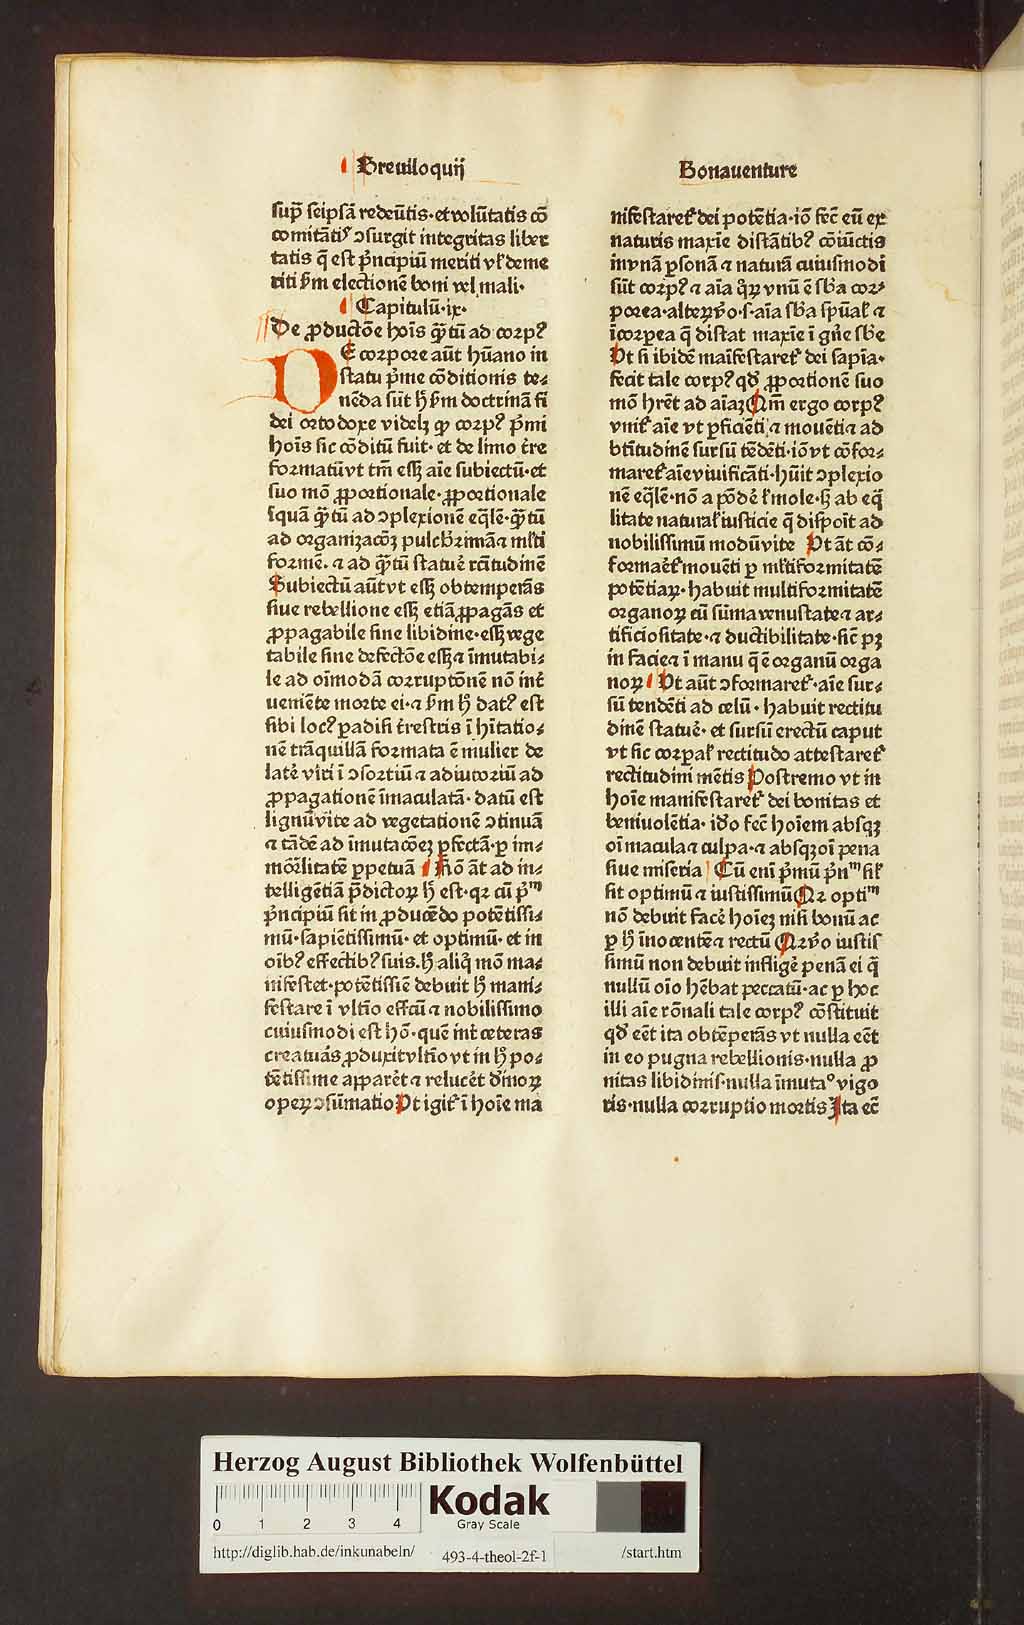 Breuiloquij
Bonauenture
sup̄ seipsā redeūtis·et volūtatis cō
comitātiꝰ ↄsurgit integritas liber
tatis q̄ est p̄ncipiū meriti vl' deme
riti ẜm electionē boni vel mali·
Capitulū·ix·
De ꝓductōe hoīs q̄ꝫtū ad corpꝰ
DE corpore aūt hūano in
statu p̄me cōditionis te⸗
nēda sūt ħ ẜm doctrinā fi
dei ortodoxe videlꝫ ꝙ corpꝰ p̄mi
hoīs sic cōditū fuit· et de limo t̄re
formatū vt tm̄ essꝫ aīe subiectū·et
suo mō ꝓportionale·ꝓportionale
īquā q̄ꝫtū ad ↄplexionē eq̄lē·q̄ꝫtū
ad organizacōꝫ pulcḣrimā ⁊ ml̄ti
formē· ⁊ ad q̄ꝫtū statuē rc̄titudinē
Subiectū aūt vt essꝫ obtemperās
siue rebellione essꝫ etiā ꝓpagās et
ꝓpagabile sine libidine·essꝫ vege
tabile sine defectōe essꝫ ⁊ īmutabi⸗
le ad oīmodā corruptōnē nō int̄
ueniēte morte ei·⁊ ẜm ħ datꝰ est
sibi locꝰ padisi t̄restris ī hītatio⸗
nē trāquillā formata ē mulier de
late᷑ viri ī ↄsortiū ⁊ adiutoriū ad
ꝓpagationē īmaculatā· datū est
lignū vite ad vegetationē ↄtinuā
⁊ tādē ad īmutacōeꝫ ꝑfectā·ꝑ im⸗
mōrlitatē ꝑpetuā Rō āt ad in⸗
telligētiā p̄dictoꝝ ħ est·qꝛ cū p̄ᵐ
p̄ncipiū sit in ꝓducēdo potētissi⸗
mū·sapiētissimū· et optimū· et in
oībꝰ effectibꝰ suis·ħ aliq̄ mō ma⸗
nifestet·potētissie debuit ħ mani⸗
festare ī vltīo effcū ⁊ nobilissimo
cuiusmodi est hō·quē int̄ ceteras
creatuās ꝓduxit vltīo vt in ħ po⸗
tētissime appare᷑t ⁊ reluce᷑t dīnoꝝ
opeꝝ ↄsūmatio Vt igit᷑ ī hoīe ma
nifestaret᷑ dei potētia·iō fec̄ eū ex
naturis maxīe distātibꝰ cōiūctis
in vnā ꝑsonā ⁊ naturā cuiusmodi
sūt corpꝰ ⁊ aīa q̄ꝝ vnū ē sb̄a cor⸗
porea·alteꝝ v̄o·s·aīa sb̄a spūal' ⁊
īcorpea q̄ distat maxīe ī gn̄e sb̄e
Vt si ibidē maīfestaret᷑ dei sapīa·
fecit tale corpꝰ qd̄ ꝓportionē suo
mō hr̄et ad aīaꝫ Qm̄ ergo corpꝰ
vnit᷑ aīe vt ꝑficiēti ⁊ mouēti ⁊ ad
btītudinē sursū tēdēti·iō vt cōfor⸗
maret᷑ aīe viuificāti·hūit ↄplexio
nē eq̄lē·nō a pōdē l' mole·sꝫ ab eq̄
litate natural' iusticie q̄ dispoīt ad
nobilissimū modū vite Vt āt cō⸗
formaēt᷑ mouēti ꝑ ml̄tiformitatē
potētiaꝝ· habuit multiformitatē
organoꝝ cū sūma venustate ⁊ ar⸗
tificiositate·⁊ ductibilitate·sic̄ pꝫ
in facie ⁊ ī manu q̄ ē organū orga
noꝝ Vt aūt ↄformaret᷑·aīe sur⸗
sū tendēti ad celū· habuit rectitu
dinē statue᷑· et sursū erectū caput
vt sic corpal' rectitudo attestaret᷑
rectitudini mētis Postremo vt in
hoīe manifestaret᷑ dei bonitas et
beniuolētia· idō fec̄ hoīem absqꝫ
oī macula ⁊ culpa·⁊ absqꝫ oī pena
siue miseria Cū enī p̄mū p̄nᵐ sil'
sit optimū ⁊ iustissimū Qꝛ optiᵐ
nō debuit face᷑ hoīeꝫ nisi bonū ac
ꝑ ħ īnocentē ⁊ rectū Qꝛ v̄o iustis
simū non debuit inflige᷑ penā ei q̄
nullū oīo hēbat peccatū·ac ꝑ hoc
illi aīe rōnali tale corpꝰ cōstituit
qd̄ ee᷑t ita obtēperās vt nulla ee᷑t
in eo pugna rebellionis·nulla ꝓ
nitas libidinis·nulla īmutaᵒ vigo
ris·nulla corruptio mortis Ita ec̄
Herzog August Bibliothek Wolfenbüttel
0 1 2 3 4
Kodak
Gray Scale
http://diglib.hab.de/inkunabeln/ 493-4-theol-2f-1 /start.htm